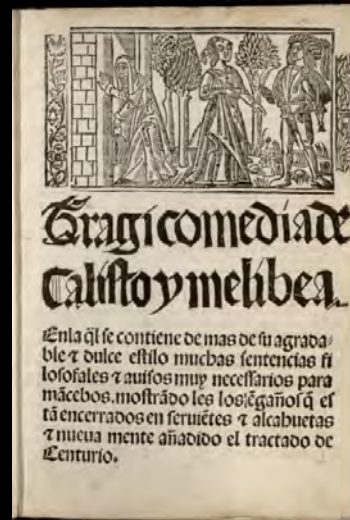 Tragicomedia de
Calisto y melibea.
Enla q̃l se contiene de mas de su agrada-
ble ⁊ dulce estilo muchas sentencias fi
losofales ⁊ auisos muy necessarios para
mãcebos. mostrãdo les los ẽgaños q̃ es
tã encerrados en seruiẽtes ⁊ alcahuetas
⁊ nueua mente añadido el tractado de
Centurio.